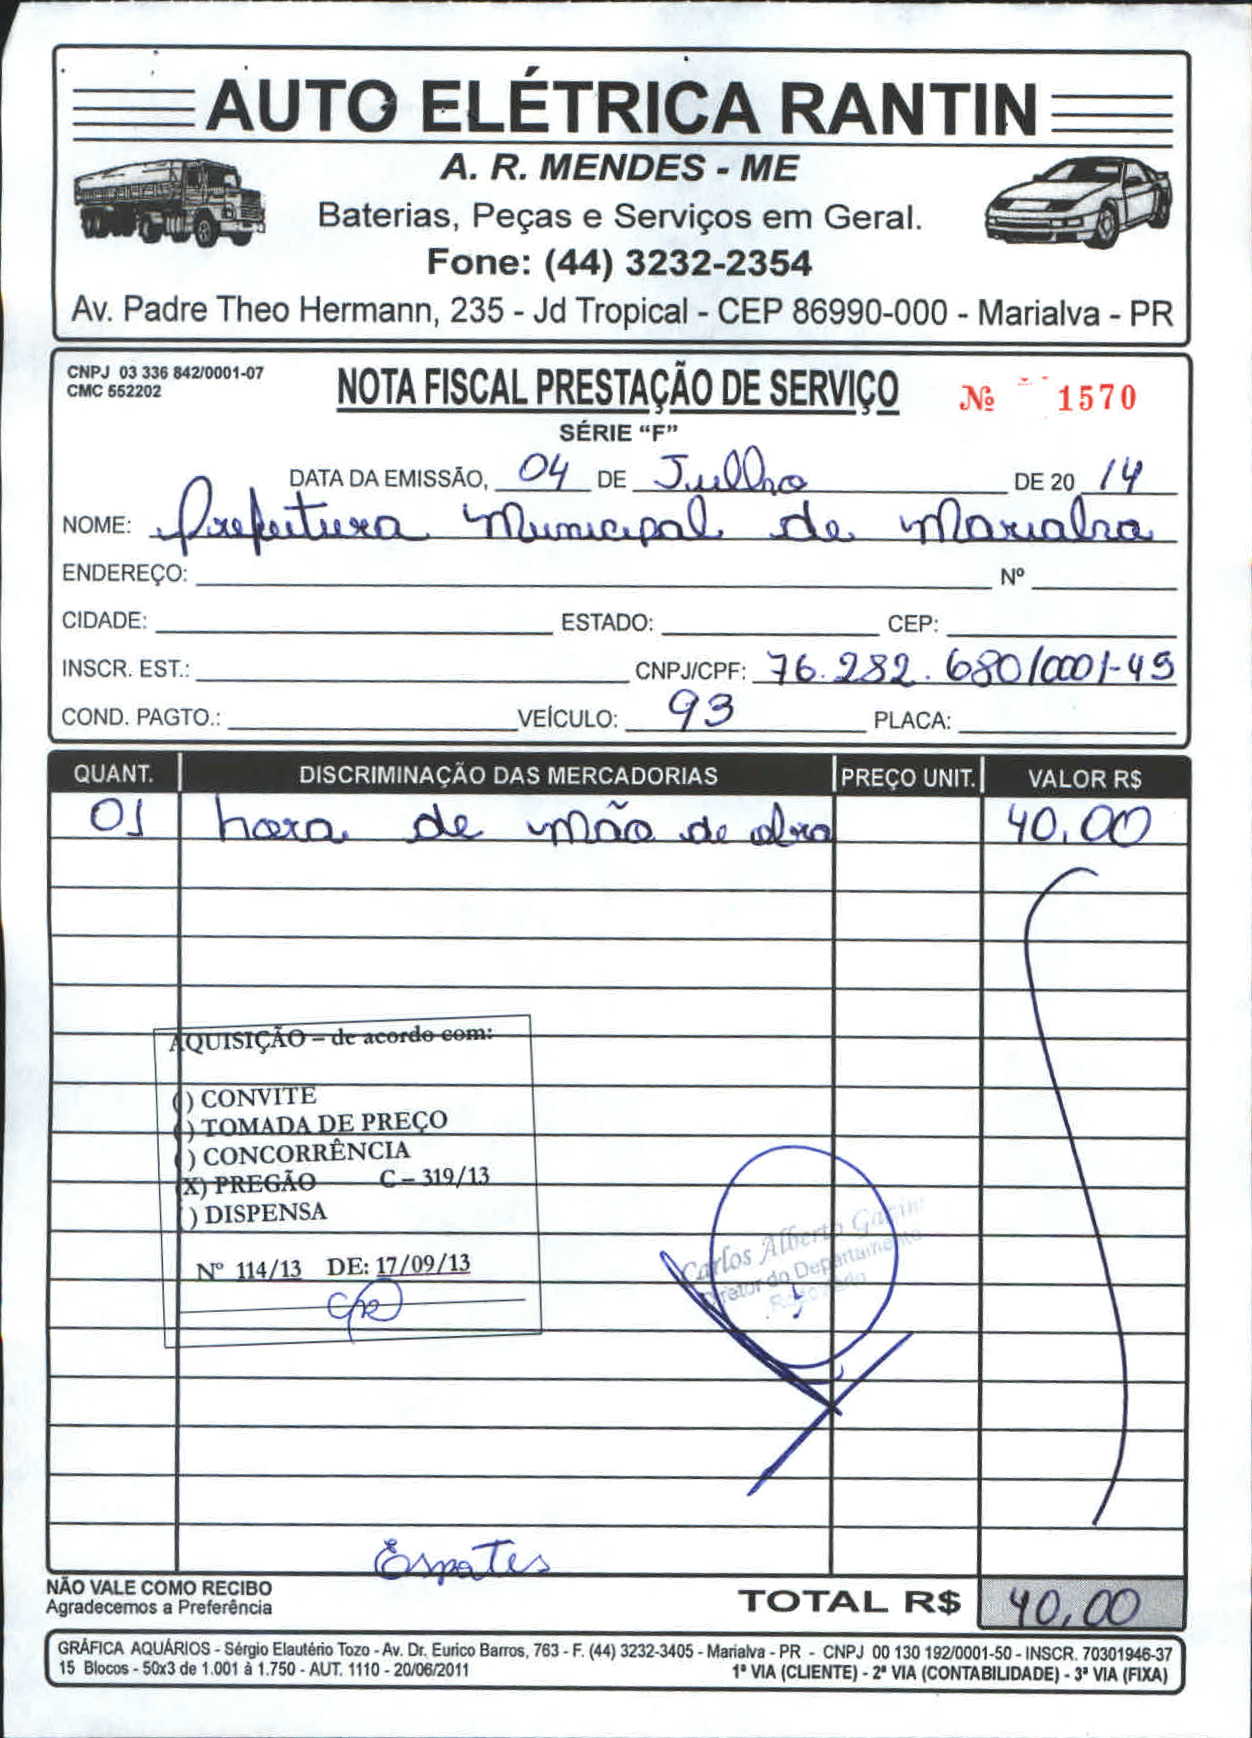 AUTO ELÉTRICA RANTIN
A. R. MENDES - ME
Baterias, Peças e Serviços em Geral.
Fone: (44) 3232-2354
Av. Padre Theo Hermann, 235 - Jd Tropical - CEP 86990-000 - Marialva - PR
CNPJ 03 336 842/0001-07
CMC 552202
NOTA FISCAL PRESTAÇÃO DE SERVIÇO
Nº 1570
SÉRIE “F”
DATA DA EMISSÃO, 04 DE Julho DE 20 14
NOME: Prefeitura Municipal de Marialva
ENDEREÇO: Nº
CIDADE: ESTADO: CEP:
INSCR. EST.: CNPJ/CPF: 76.282.680/0001-45
COND. PAGTO.: VEÍCULO: 93 PLACA:
QUANT. DISCRIMINAÇÃO DAS MERCADORIAS PREÇO UNIT. VALOR R$
01 hora de mão de obra 40,00
AQUISIÇÃO – de acordo com:
( ) CONVITE
( ) TOMADA DE PREÇO
( ) CONCORRÊNCIA
(X) PREGÃO C – 319/13
( ) DISPENSA
Nº 114/13 DE: 17/09/13
Carlos Alberto
Diretor do Departamento
NÃO VALE COMO RECIBO
Agradecemos a Preferência
TOTAL R$ 40,00
GRÁFICA AQUÁRIOS - Sérgio Elautério Tozo - Av. Dr. Eurico Barros, 763 - F. (44) 3232-3405 - Marialva - PR - CNPJ 00 130 192/0001-50 - INSCR. 70301946-37
15 Blocos - 50x3 de 1.001 à 1.750 - AUT. 1110 - 20/06/2011 1ª VIA (CLIENTE) - 2ª VIA (CONTABILIDADE) - 3ª VIA (FIXA)